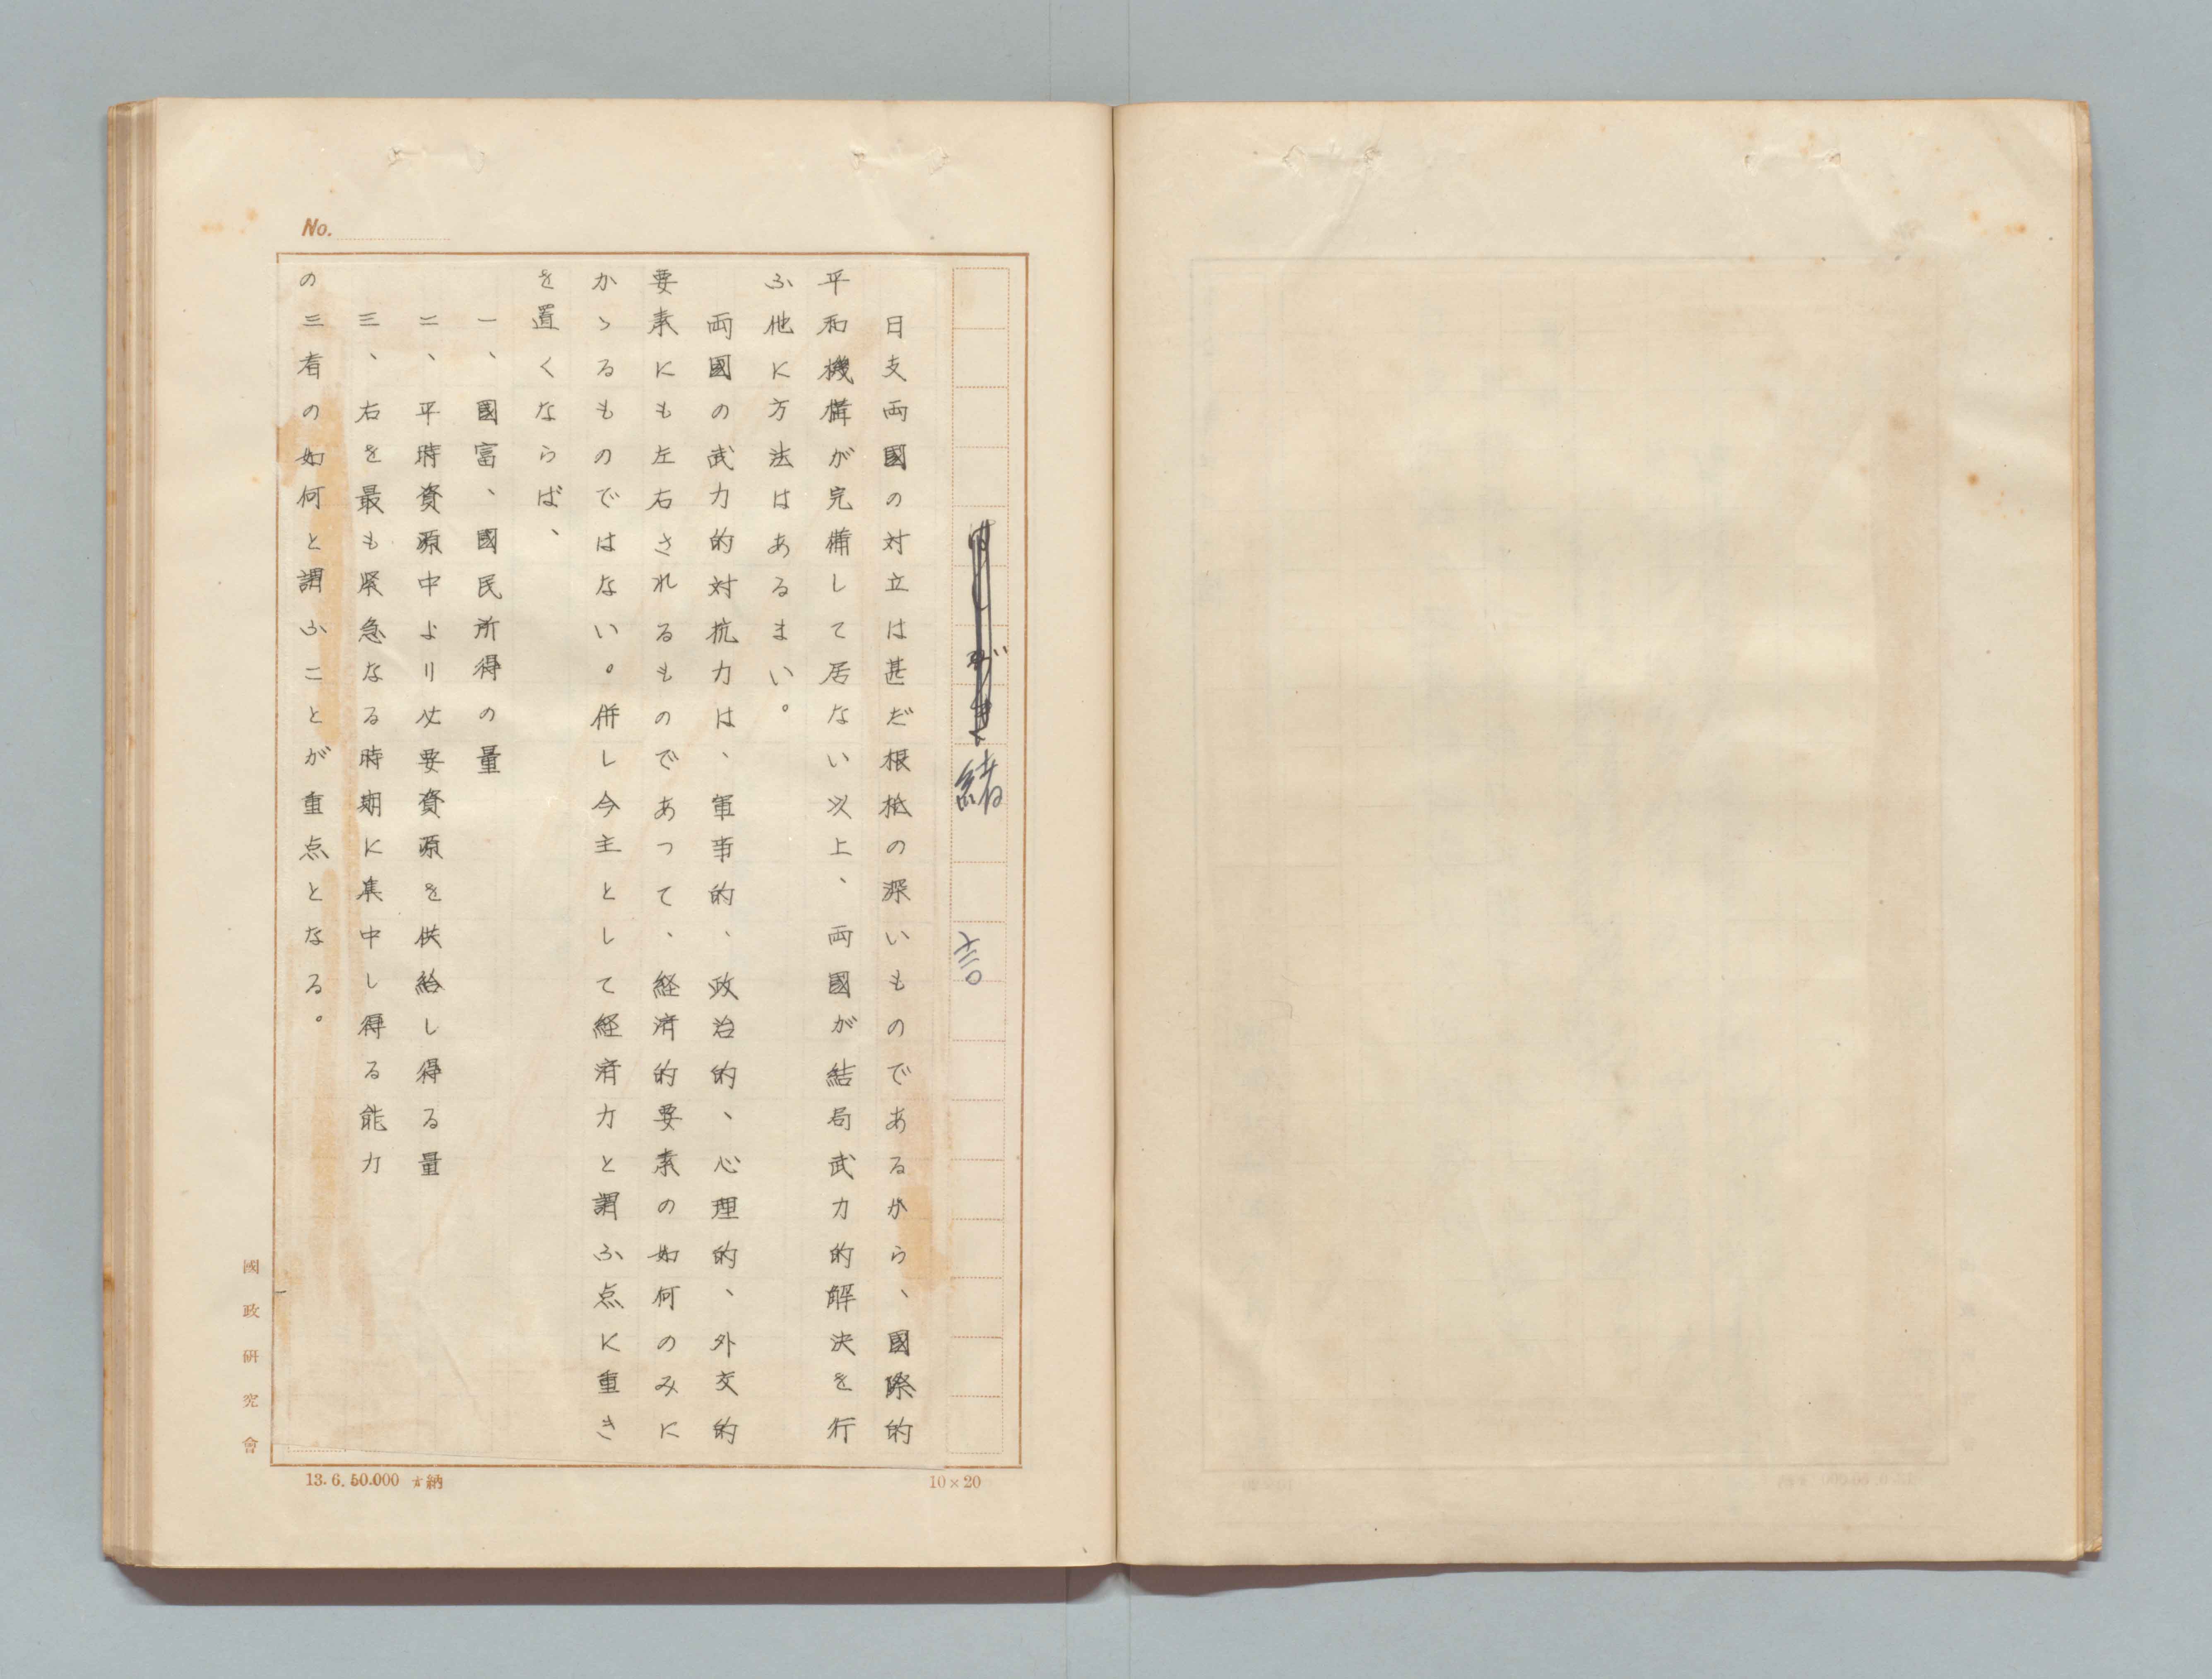 No.
緒言
日支両國の対立は甚だ根柢の深いものであるから、國際的
平和機構が完備して居ない以上、両國が結局武力的解決を行
ふ他に方法はあるまい。
両國の武力的対抗力は、軍事的、政治的、心理的、外交的
要素にも左右されるものであって、経済的要素の如何のみに
かゝるものではない。併し今主として経済力と謂ふ点に重き
を置くならば、
一、國富、國民所得の量
二、平時資源中より必要資源を供給し得る量
三、右を最も緊急なる時期に集中し得る能力
の三者の如何と謂ふことが重点となる。
國政研究會
13.6.50.000 納
10×20